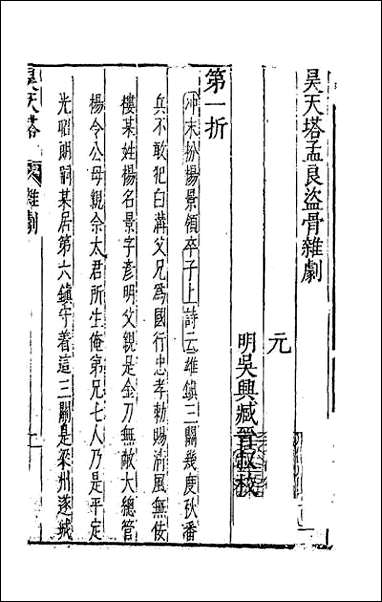 昊天塔孟良盜骨雜劇
元
明吳興臧晉叔校
第一折
冲末扮楊景領卒子上詩云雄鎮三關幾度秋番
兵不敢犯白溝父兄為國行忠孝勅賜清風無佞
樓某姓楊名景字彥明父親是金刀無敵大總管
楊令公母親佘太君所生俺弟兄七人乃是平定
光昭朗嗣某居第六鎮守着這三關是梁州遂城
昊天塔
雜劇
一